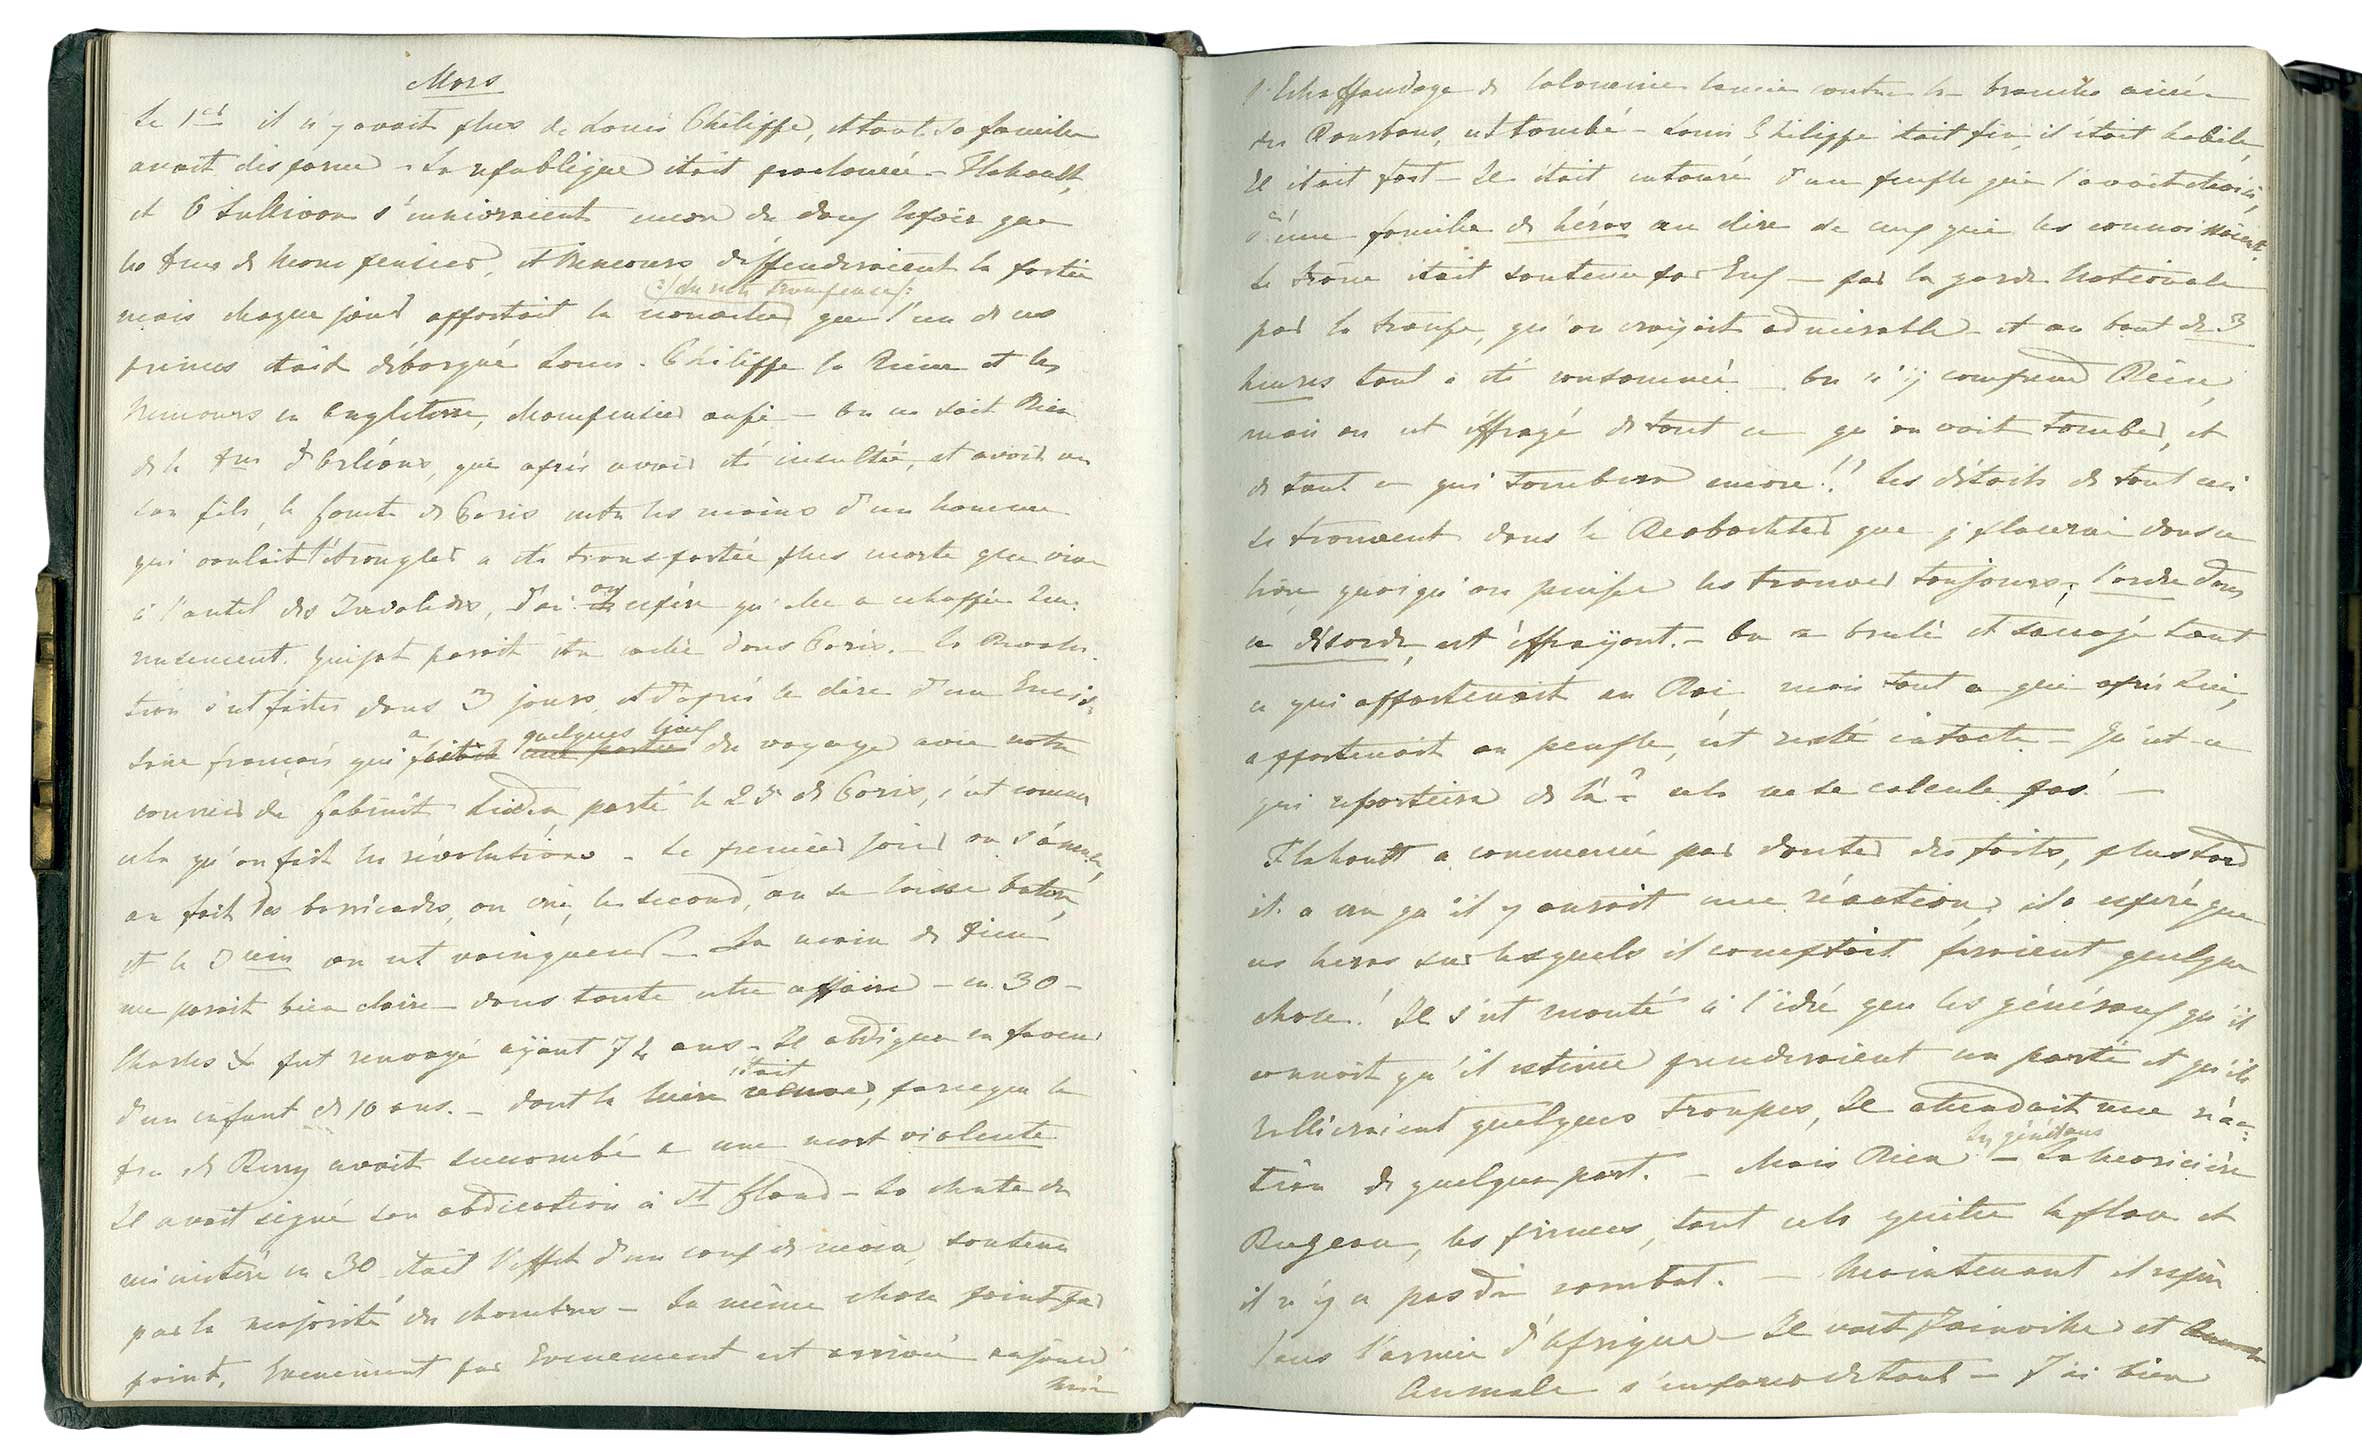 Mars
Le 1er il n'y avait plus de Louis Philippe, et toute sa famille
avait disparue - La republique était proclamée - Flahault,
et O Sullivan s'ennivraient encore du doux espoir que
les Ducs de Montpensier, et Nemours deffenderaient la partie
mais chaque jour apportait la nouvelle que l'un de ces
princes était débarqué Louis-Philippe la Reine et les
Nemours en Angleterre, Montpensier aussi - On ne sait Rien
de la Duc d'Orléans, que après avoir été insultée, et avoir vu
son fils, le Comte de Paris entre les mains d'un homme
qui voulait l'étrangler a été transportée plus morte que vive
à l'autel des Invalides, d'ai on espère qu'elle a echappée heu-
reusement. Guizot parait être caché dans Paris. - La Revolu-
tion s'est faite dans 3 jours, et d'après le dire d'un Emis-
saire français qui a fait quelques lieux du voyage avec notre
courrier de Cabinet parti le 25 de Paris, c'est comme
cela qu'on fait les révolutions - Le premier jour on s'ameute,
on fait des barricades, on crie, le second, on se laisse battre,
et le 3ieme on est vainqueur - La main de Dieu
me parait bien claire - dans toute cette affaire - en 30 -
Charles X fut renvoyé ayant 74 ans - Il abdiqua en faveur
d'un enfant de 10 ans. - dont la mère était veuve, parceque le
duc de Berry avait succombé a une mort violente
Il avait signé son abdication à St Cloud - La chute du
ministère en 30 était l'effet d'un coup de main, soutenu
par la majorité des chambres - La même chose point par
point, Evenement par Evenement est arrivé aujourd'
hui
l'Echaffaudage de calomnies lancées contre la branche ainée
des Bourbons, est tombé - Louis Philippe était fin, il était habile,
Il était fort - Il était entouré d'un peuple qui l'avait choisi,
d'une famille de héros au dire de ceux qui les connoissaient.
Le trône était soutenu par Eux - par la garde Nationale
par la troupe, qu'on croyait admirable - et au bout de 3
heures tout a été consommé - On n'y comprend Rien,
mais on est effrayé de tout ce qu'on voit tomber, et
de tout ce qui tombera encore!! Les détails de tout ceci
se trouvent dans le Beobachter que je placerai dans ce
livre, quoiqu'on puisse les trouver toujours; l'ordre dans
ce désordre, est effrayant. - On a brulé et saccagé tout
ce qui appartenait au Roi, mais tout ce qui après lui,
appartenait au peuple, est resté intacte - Qu'est-ce
qui repartira de là? cela ne se calcule pas! -
Flahault a commencé par douter des faits, plus tard
il a cru qu'il y aurait une réaction, il a espéré que
ces heros sur lesquels il comptait feraient quelque
chose! Il s'est monté à l'idée que les généraux qu'il
connait qu'il estime prenderaient un parti et qu'ils
rallieraient quelques troupes, Il attendait une réac-
tion de quelque part. - Mais Rien - les généraux Lamoricière
Bugeau, les princes, tout cela quitte la place et
il n'y a pas de combat. - Maintenant il espère
dans l'armée d'Afrique - Il voit Joinville et
Aumale s'emparer de tout - J'ai bien